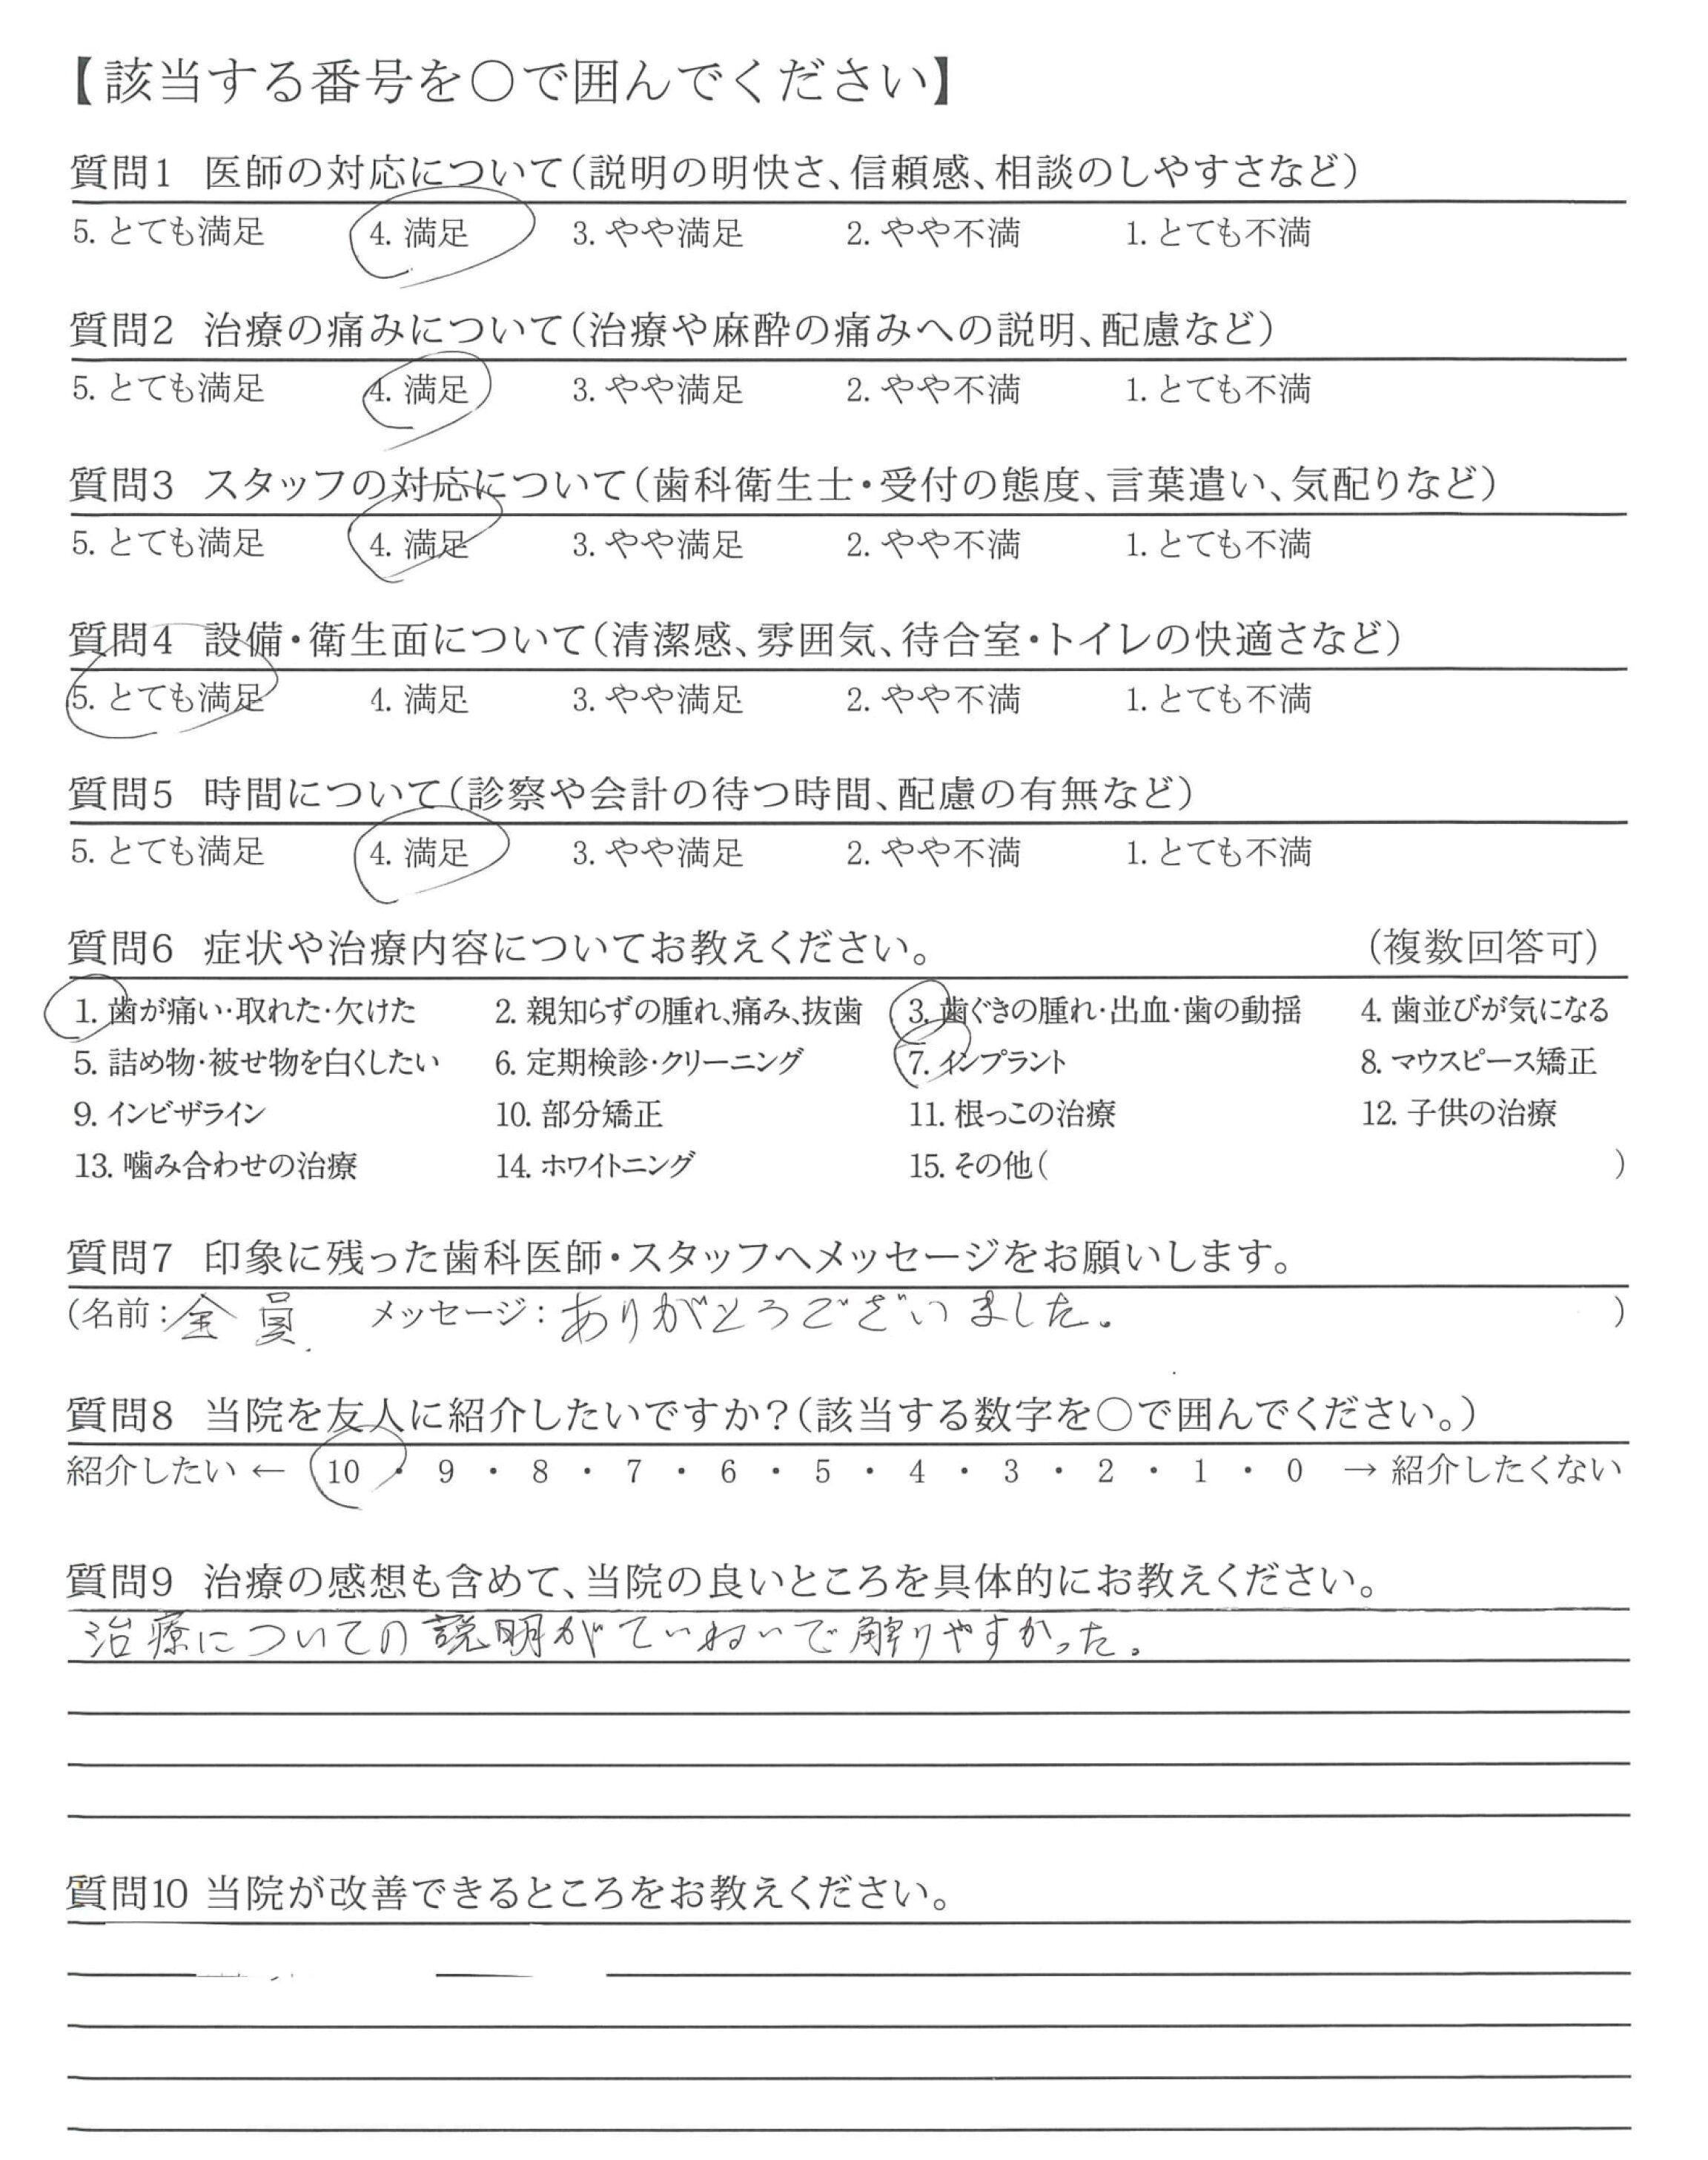 【該当する番号を○で囲んでください】
質問1 医師の対応について(説明の明快さ、信頼感、相談のしやすさなど)
5. とても満足 4. 満足 3. やや満足 2. やや不満 1. とても不満
質問2 治療の痛みについて(治療や麻酔の痛みへの説明、配慮など)
5. とても満足 4. 満足 3. やや満足 2. やや不満 1. とても不満
質問3 スタッフの対応について(歯科衛生士・受付の態度、言葉遣い、気配りなど)
5. とても満足 4. 満足 3. やや満足 2. やや不満 1. とても不満
質問4 設備・衛生面について(清潔感、雰囲気、待合室・トイレの快適さなど)
5. とても満足 4. 満足 3. やや満足 2. やや不満 1. とても不満
質問5 時間について(診察や会計の待つ時間、配慮の有無など)
5. とても満足 4. 満足 3. やや満足 2. やや不満 1. とても不満
質問6 症状や治療内容についてお教えください。 (複数回答可)
1. 歯が痛い・取れた・欠けた 2. 親知らずの腫れ、痛み、抜歯 3. 歯ぐきの腫れ・出血・歯の動揺 4. 歯並びが気になる
5. 詰め物・被せ物を白くしたい 6. 定期検診・クリーニング 7. インプラント 8. マウスピース矯正
9. インビザライン 10. 部分矯正 11. 根っこの治療 12. 子供の治療
13. 噛み合わせの治療 14. ホワイトニング 15. その他( )
質問7 印象に残った歯科医師・スタッフへメッセージをお願いします。
(名前:全員 メッセージ:ありがとうございました。 )
質問8 当院を友人に紹介したいですか?(該当する数字を○で囲んでください。)
紹介したい ← 10 ・ 9 ・ 8 ・ 7 ・ 6 ・ 5 ・ 4 ・ 3 ・ 2 ・ 1 ・ 0 → 紹介したくない
質問9 治療の感想も含めて、当院の良いところを具体的にお教えください。
治療についての説明がていねいで解りやすかった。
質問10 当院が改善できるところをお教えください。